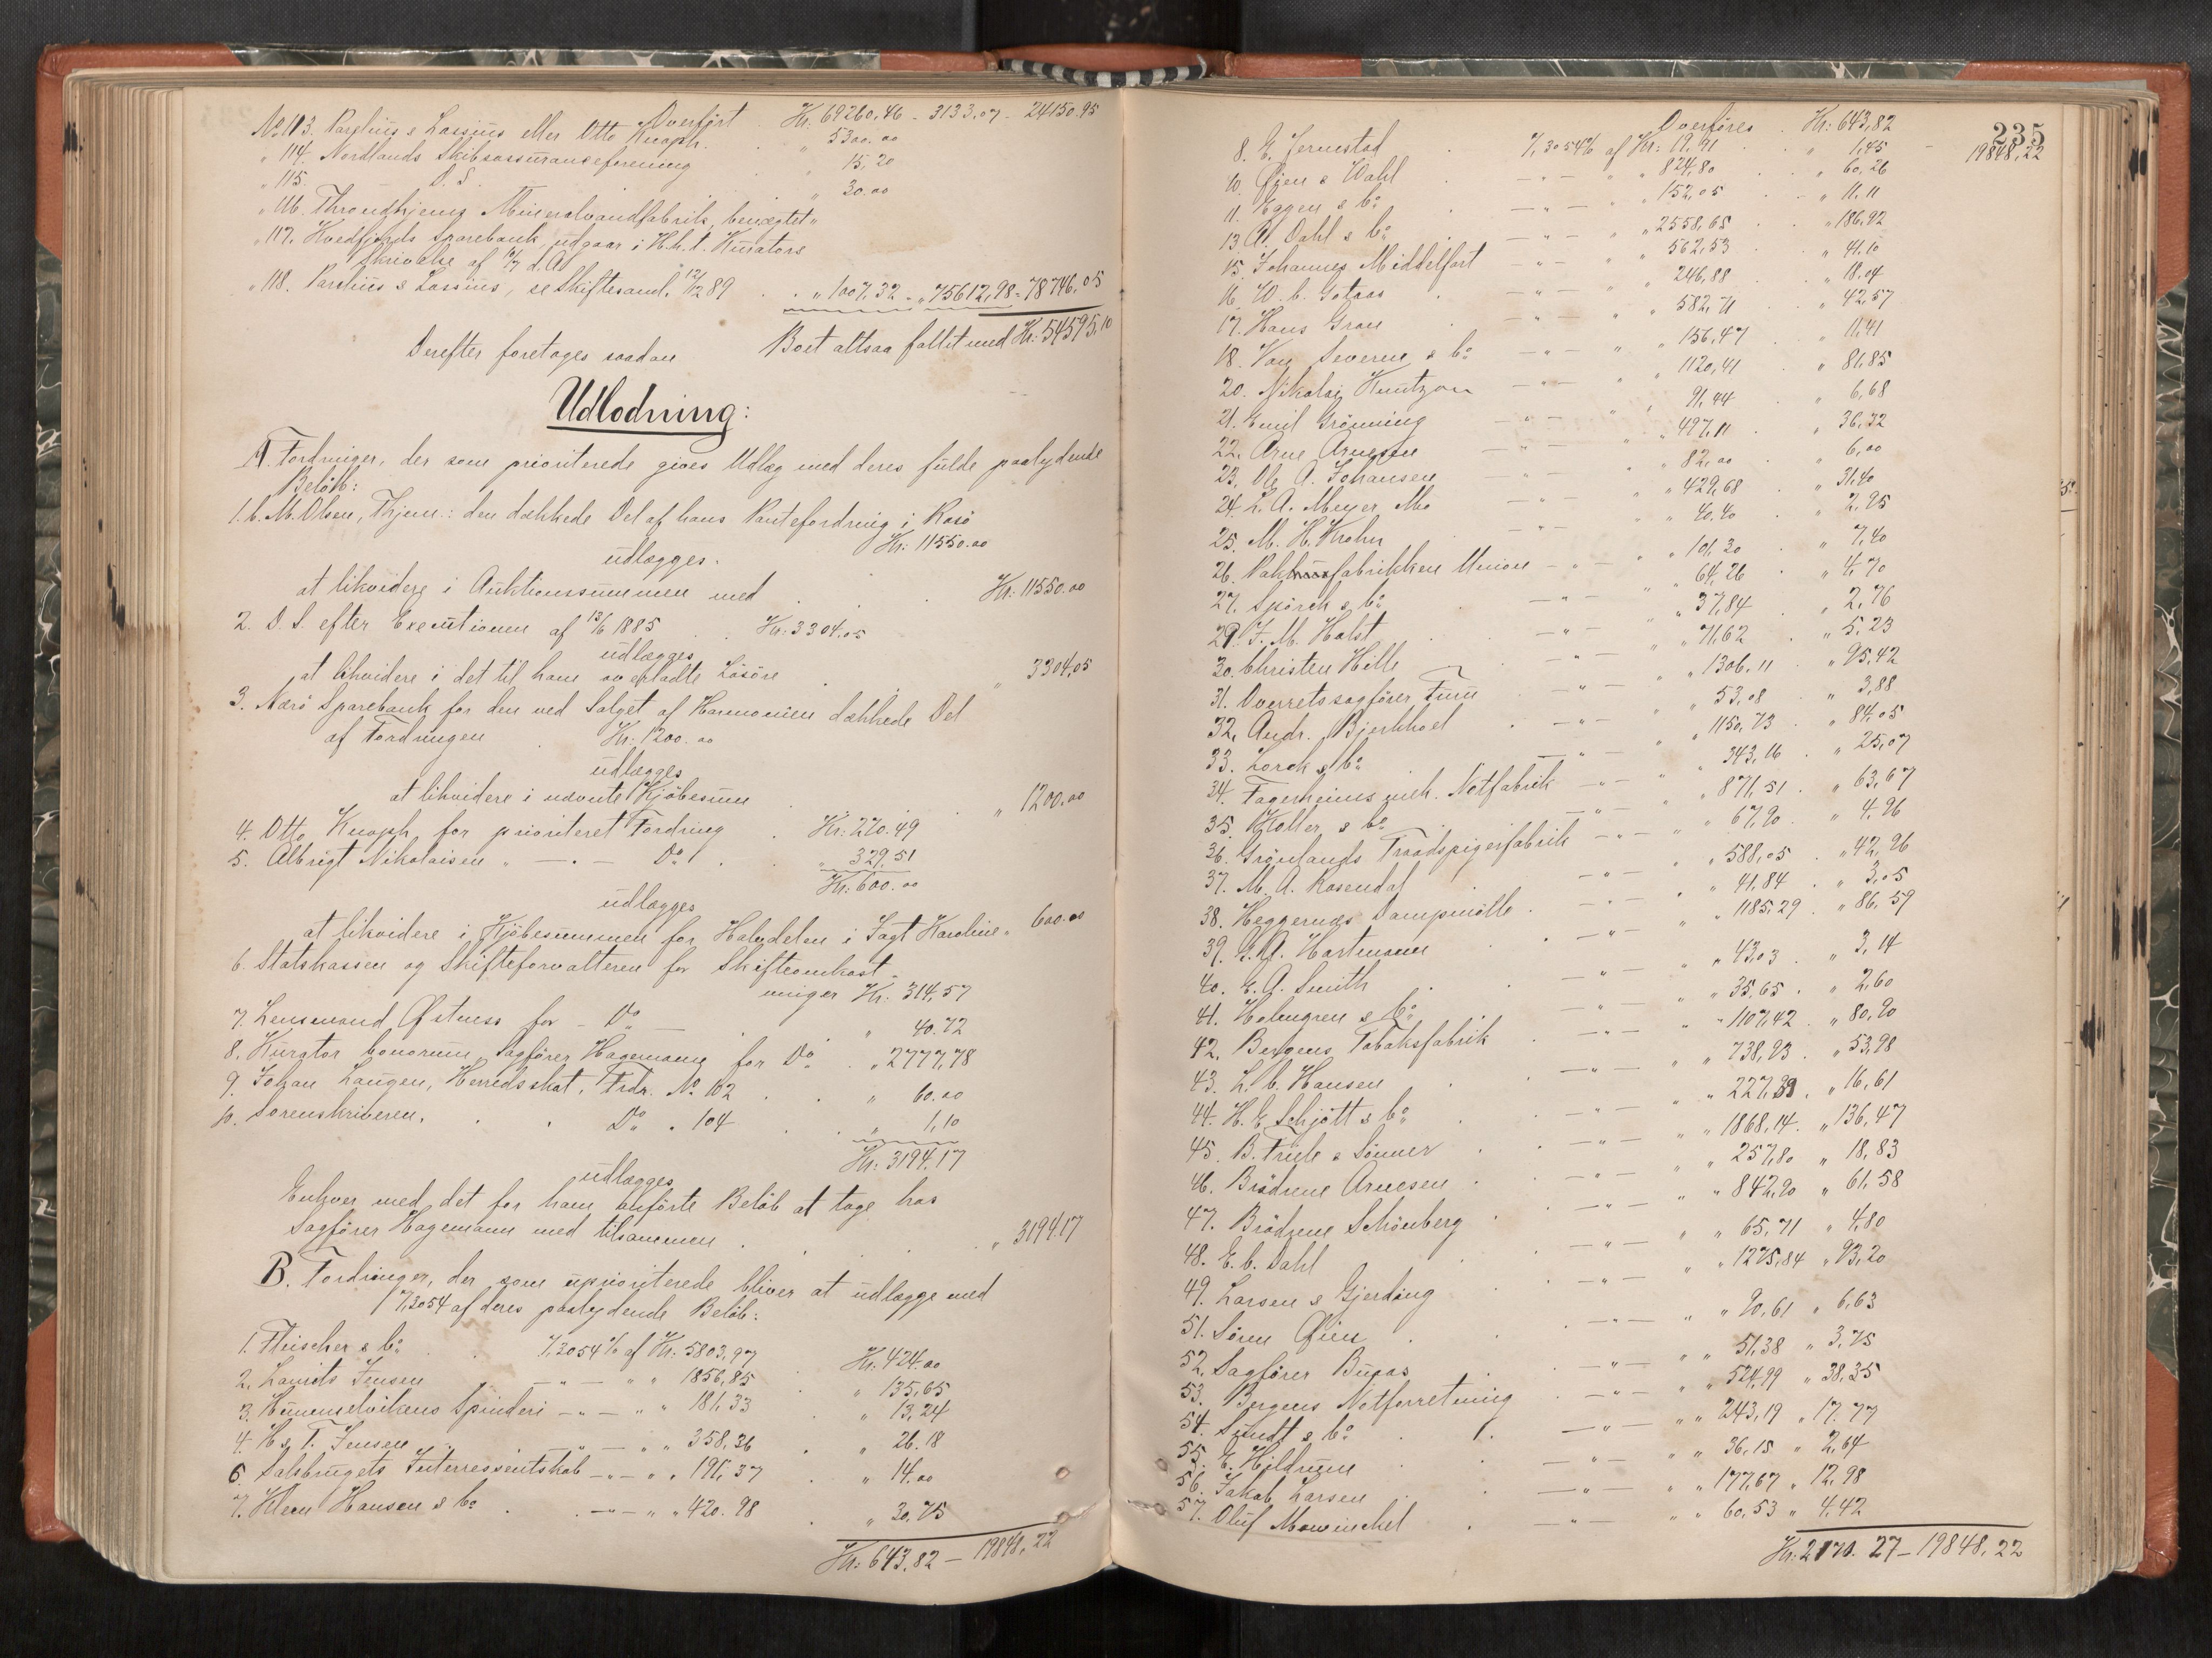 Overført Kr. 69260,46 - 3133,07 - 24150.95
No 113. Parelius & Lossius eller Otto Knoph. " 5300.00
" 114. Nordlands Skibsassuranceforening " 15,20
" 115. D. S. " 30.00
" 116. Throndhjems Mineralvandfabrik, benægtet "
" 117. Hvedfjords Sparebank, udgaar i H.h.t. Kurators
Skrivelse af d.A.
" 118. Parelius & Lossius, se Skiftesaml. 12/12 89 " 1007,32 - " 75612,98 = 78746,05
Boet altsaa fallit med Kr: 54595,10
Derefter foretages saadan
Udlodning:
A. Fordringer, der som prioriterede gives Udlæg med deres fulde paalydende
Beløb:
1. C. M. Olsen, Thjem: den dækkede Del af hans Pantefordring i Rosø
Kr: 11550.00
udlægges.
at likvidere i Auktionssummen med Kr: 11550.00
2. D. S. efter Executionen af 13/6 1885 Kr: 3304.05
udlægges
at likvidere i det til ham overladte Løsøre " 3304,05
3. Nærø Sparebank for den ved Salget af Harmonien dækkede Del
af Fordringen Kr: 1200.00
udlægges
at likvidere i nævnte Kjøbesum " 1200.00
4. Otto Knoph for prioriteret Fordring Kr: 270.49
5. Albrigt Nikolaisen " — " — Do " 329,51
Kr: 600.00
udlægges
at likvidere i Kjøbesummen for Halvdelen i Jagt Karoline " 600.00
6. Statskassen og Skifteforvalteren for Skifteomkost-
ninger Kr. 314,57
7. Lensmand Østness for - Do - " 40.72
8. Kurator bonorum, Sagfører Hagemann for Do " 2777,78
9. Johan Laugen, Herredsskat, Frdr. No 102 " 60.00
10. Sorenskriveren, Do " 104 " 1,10
Kr: 3194.17
udlægges
Enhver med det for ham anførte Beløb at tage hos
Sagfører Hagemann med tilsammen " 3194.17
B. Fordringer, der som uprioriterede bliver at udlægge med
7,3054 af deres paalydende Beløb:
1. Fleischer & Co 7,3054 % af Kr: 5803,97 Kr: 424.00
2. Laurits Jensen — " — " " 1856,85 " 135,65
3. Spinderi — " — " " 181,33 " 13,24
4. H & T. Jensen — " — " " 358,36 " 26.18
6. Salsbrugets Interressentskab — " — " " 191,37 " 14.00
7. Klem Hansen & Co — " — " " 420.98 " 30,75
Kr: 643,82 — 19848,22
235
Overføres Kr: 643,82 - 19848,22
8. E. Jernestad 7,3054 % af Kr: 19.91 " 1,45
10. Øjen & Wahl — " — " " 824,80 " 60,26
11. Eggen & Co — " — " " 152,05 " 11.11
13. A. Dahl & Co — " — " " 2558,68 " 186,92
15. Johannes Middelfart — " — " " 562,53 " 41.10
16. W. C. Gotaas — " — " " 246,88 " 18.04
17. Hans Gran — " — " " 582,71 " 42,57
18. Van Severen & Co — " — " " 156,47 " 11,41
20. Nikolai Knutzon — " — " " 1120,41 " 81,85
21. Emil Grønning — " — " " 91,44 " 6,68
22. Arne Arnesen — " — " " 497,11 " 36,32
23. Ole A. Johansen — " — " " 82,00 " 6,00
24. L. A. Meyer Mo — " — " " 429,68 " 31,40
25. M. H. Krohn — " — " " 40.40 " 2,95
26. Pakfabrikken Union — " — " " 101,30 " 7,40
27. Spørck & Co — " — " " 64,26 " 4,70
29. J. M. Holst — " — " " 37,84 " 2,76
30. Christen Hille — " — " " 71,62 " 5,23
31. Overretssagfører Finn — " — " " 1306.11 " 95,42
32. Andr. Bjerkhoel — " — " " 53,08 " 3,88
33. Lorck & Co — " — " " 1150,73 " 84,05
34. Fagerheims mek. Notfabrik — " — " " 343,16 " 25,07
35. Møller & Co — " — " " 871,51 " 63,67
36. Grønlands Traadspigerfabrik — " — " " 67,90 " 4,96
37. M. A. Rosendal — " — " " 588,05 " 42,96
38. Heggernæs Dampmølle — " — " " 41,84 " 3,05
39. G. A. Hartmann — " — " " 1185,29 " 86,59
40. E. A. Smith — " — " " 43,03 " 3,14
41. Holmgren & Co — " — " " 35,65 " 2,60
42. Bergens Tobaksfabrik — " — " " 1107,42 " 80,90
43. L. C. Hansen — " — " " 738,93 " 53,98
44. H. E. Schjøtt & Co — " — " " 227,39 " 16,61
45. B. Friele & Sønner — " — " " 1868,14 " 136,47
46. Brødrene Arnesen — " — " " 257,80 " 18,83
47. Brødrene Schönberg — " — " " 842,90 " 61,58
48. E. C. Dahl — " — " " 65,71 " 4,80
49. Larsen & Gjerding — " — " " 1275,84 " 93,20
51. Søren Øien — " — " " 90,61 " 6,63
52. Sagfører Bugas — " — " " 51,38 " 3,75
53. Bergens Notforretning — " — " " 524,99 " 38,35
54. Sundt & Co — " — " " 243,19 " 17.77
55. E. Hildrum — " — " " 36,15 " 2,64
56. Jakob Larsen — " — " " 177,67 " 12,98
57. Oluf Mowinckel — " — " " 60,53 " 4,42
Kr: 2170.27 — 19848,22